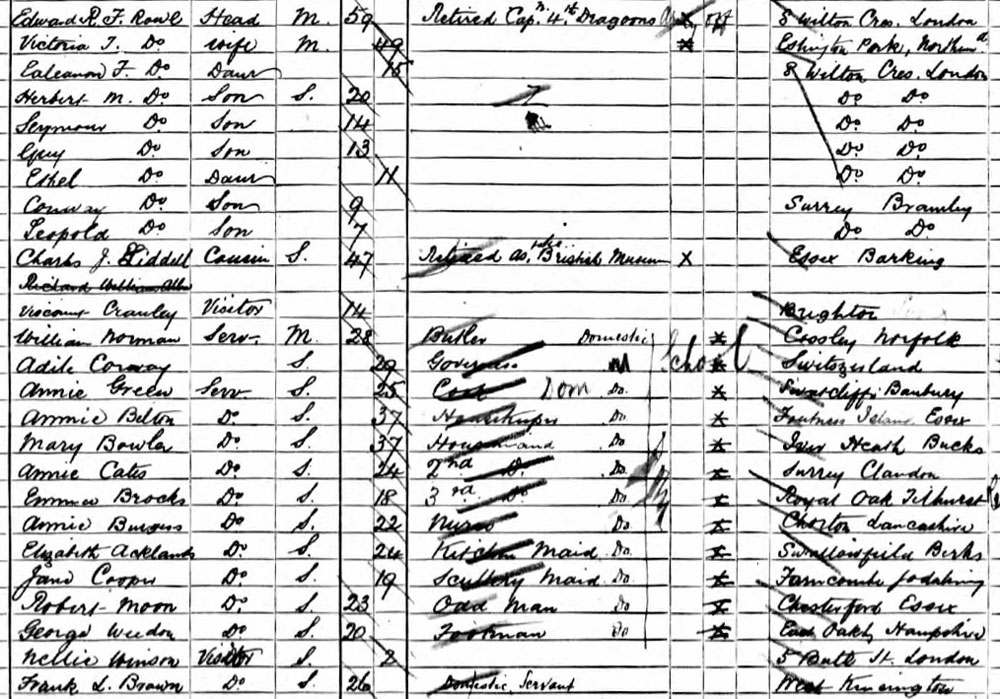 Edward R. F. Rowe Head M. 59 Retired Cap.n 4.th Dragoons X off 8 Wilton Cres. London
Victoria T. Do wife M. 49 X Eslington Park, Northum
Ealeanon F. Do Daur 15 8 Wilton Cres. London
Herbert M. Do Son S. 20 Do Do
Seymour Do Son 14 Do Do
Guy Do Son 13 Do Do
Ethel Do Daur 11 Do Do
Conway Do Son 9 Surrey Bramley
Leopold Do Son 7 Do Do
Charles J. Liddell Cousin S. 47 Retired as. British Museum X Essex Barking
Richard William
Viscount Cranley Visitor 14 Brighton
William Norman Serv. M. 28 Butler Domestic X Crossley Norfolk
Adile S. 29 Governess School X Switzerland
Annie Green Serv S. 25 Cook Dom Do X Banbury
Annie Belton Do S. 37 Housekeeper Do X Foulness Island Essex
Mary Bowler Do S. 37 Housemaid Do X Iver Heath Bucks
Annie Cates Do S. 24 2nd Do Do X Surrey Clandon
Emmie Brooks Do S. 18 3rd Do Do X Royal Oak Tilhurst
Annie Burgess Do S. 22 Nurse Do X Chorlton Lancashire
Elizabeth Acklands Do S. 24 Kitchen Maid Do X Swallowfield Berks
Jane Cooper Do S. 19 Scullery Maid Do X Farncombe Godalming
Robert Moon Do S. 23 Odd Man Do X Chesterford Essex
George Weedon Do S. 20 Footman Do X East Oakly Hampshire
Nellie Winson Visitor S. 2 5 Bult St. London
Frank L. Brown Do S. 26 Domestic Servant West Kensington